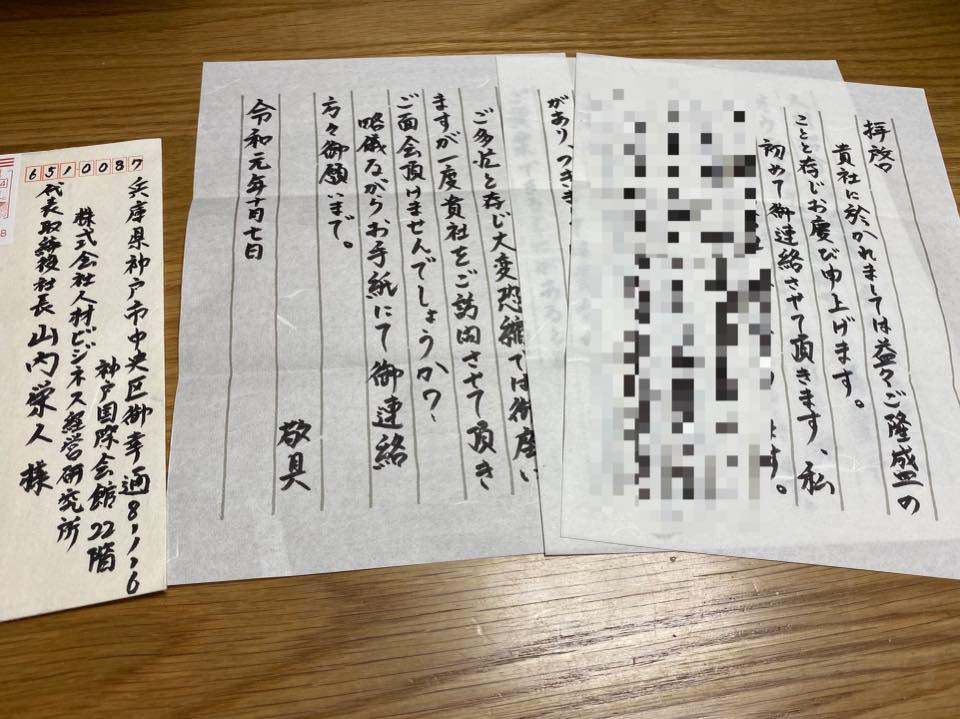 拝啓
貴社に於かれましては益々ご隆盛の
ことと存じお慶び申上げます。
初めて御連絡させて頂きます、私
ます。
があり、つきま
ご多忙と存じ大変恐縮では御座い
ますが一度貴社をご訪問させて頂き
ご面会頂けませんでしょうか?
略儀ながらお手紙にて御連絡
方々御願いまで。
敬具
令和元年十月七日
6510087
兵庫県神戸市中央区御幸通8-1-6
神戸国際会館22階
株式会社人材ビジネス経営研究所
代表取締役社長 山内栄人 様